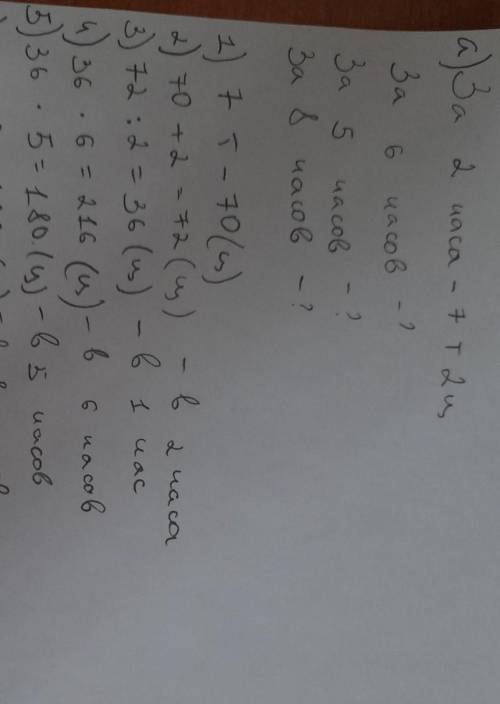 а) За 2 часа - 7 т 2ц
За 6 часов - ?
За 5 часов - ?
За 8 часов - ?
1) 7 т - 70 (ц)
2) 70 + 2 = 72 (ц) - в 2 часа
3) 72 : 2 = 36 (ц) - в 1 час
4) 36 · 6 = 216 (ц) - в 6 часов
5) 36 · 5 = 180 (ц) - в 5 часов